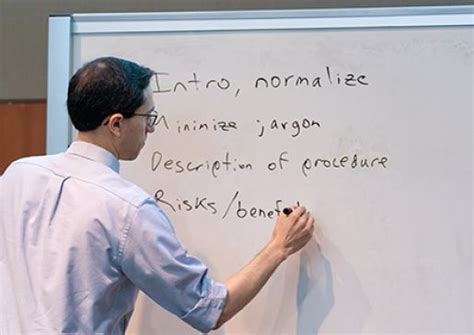 Intro, normalize
Minimize jargon
Description of procedure
Risks/benef